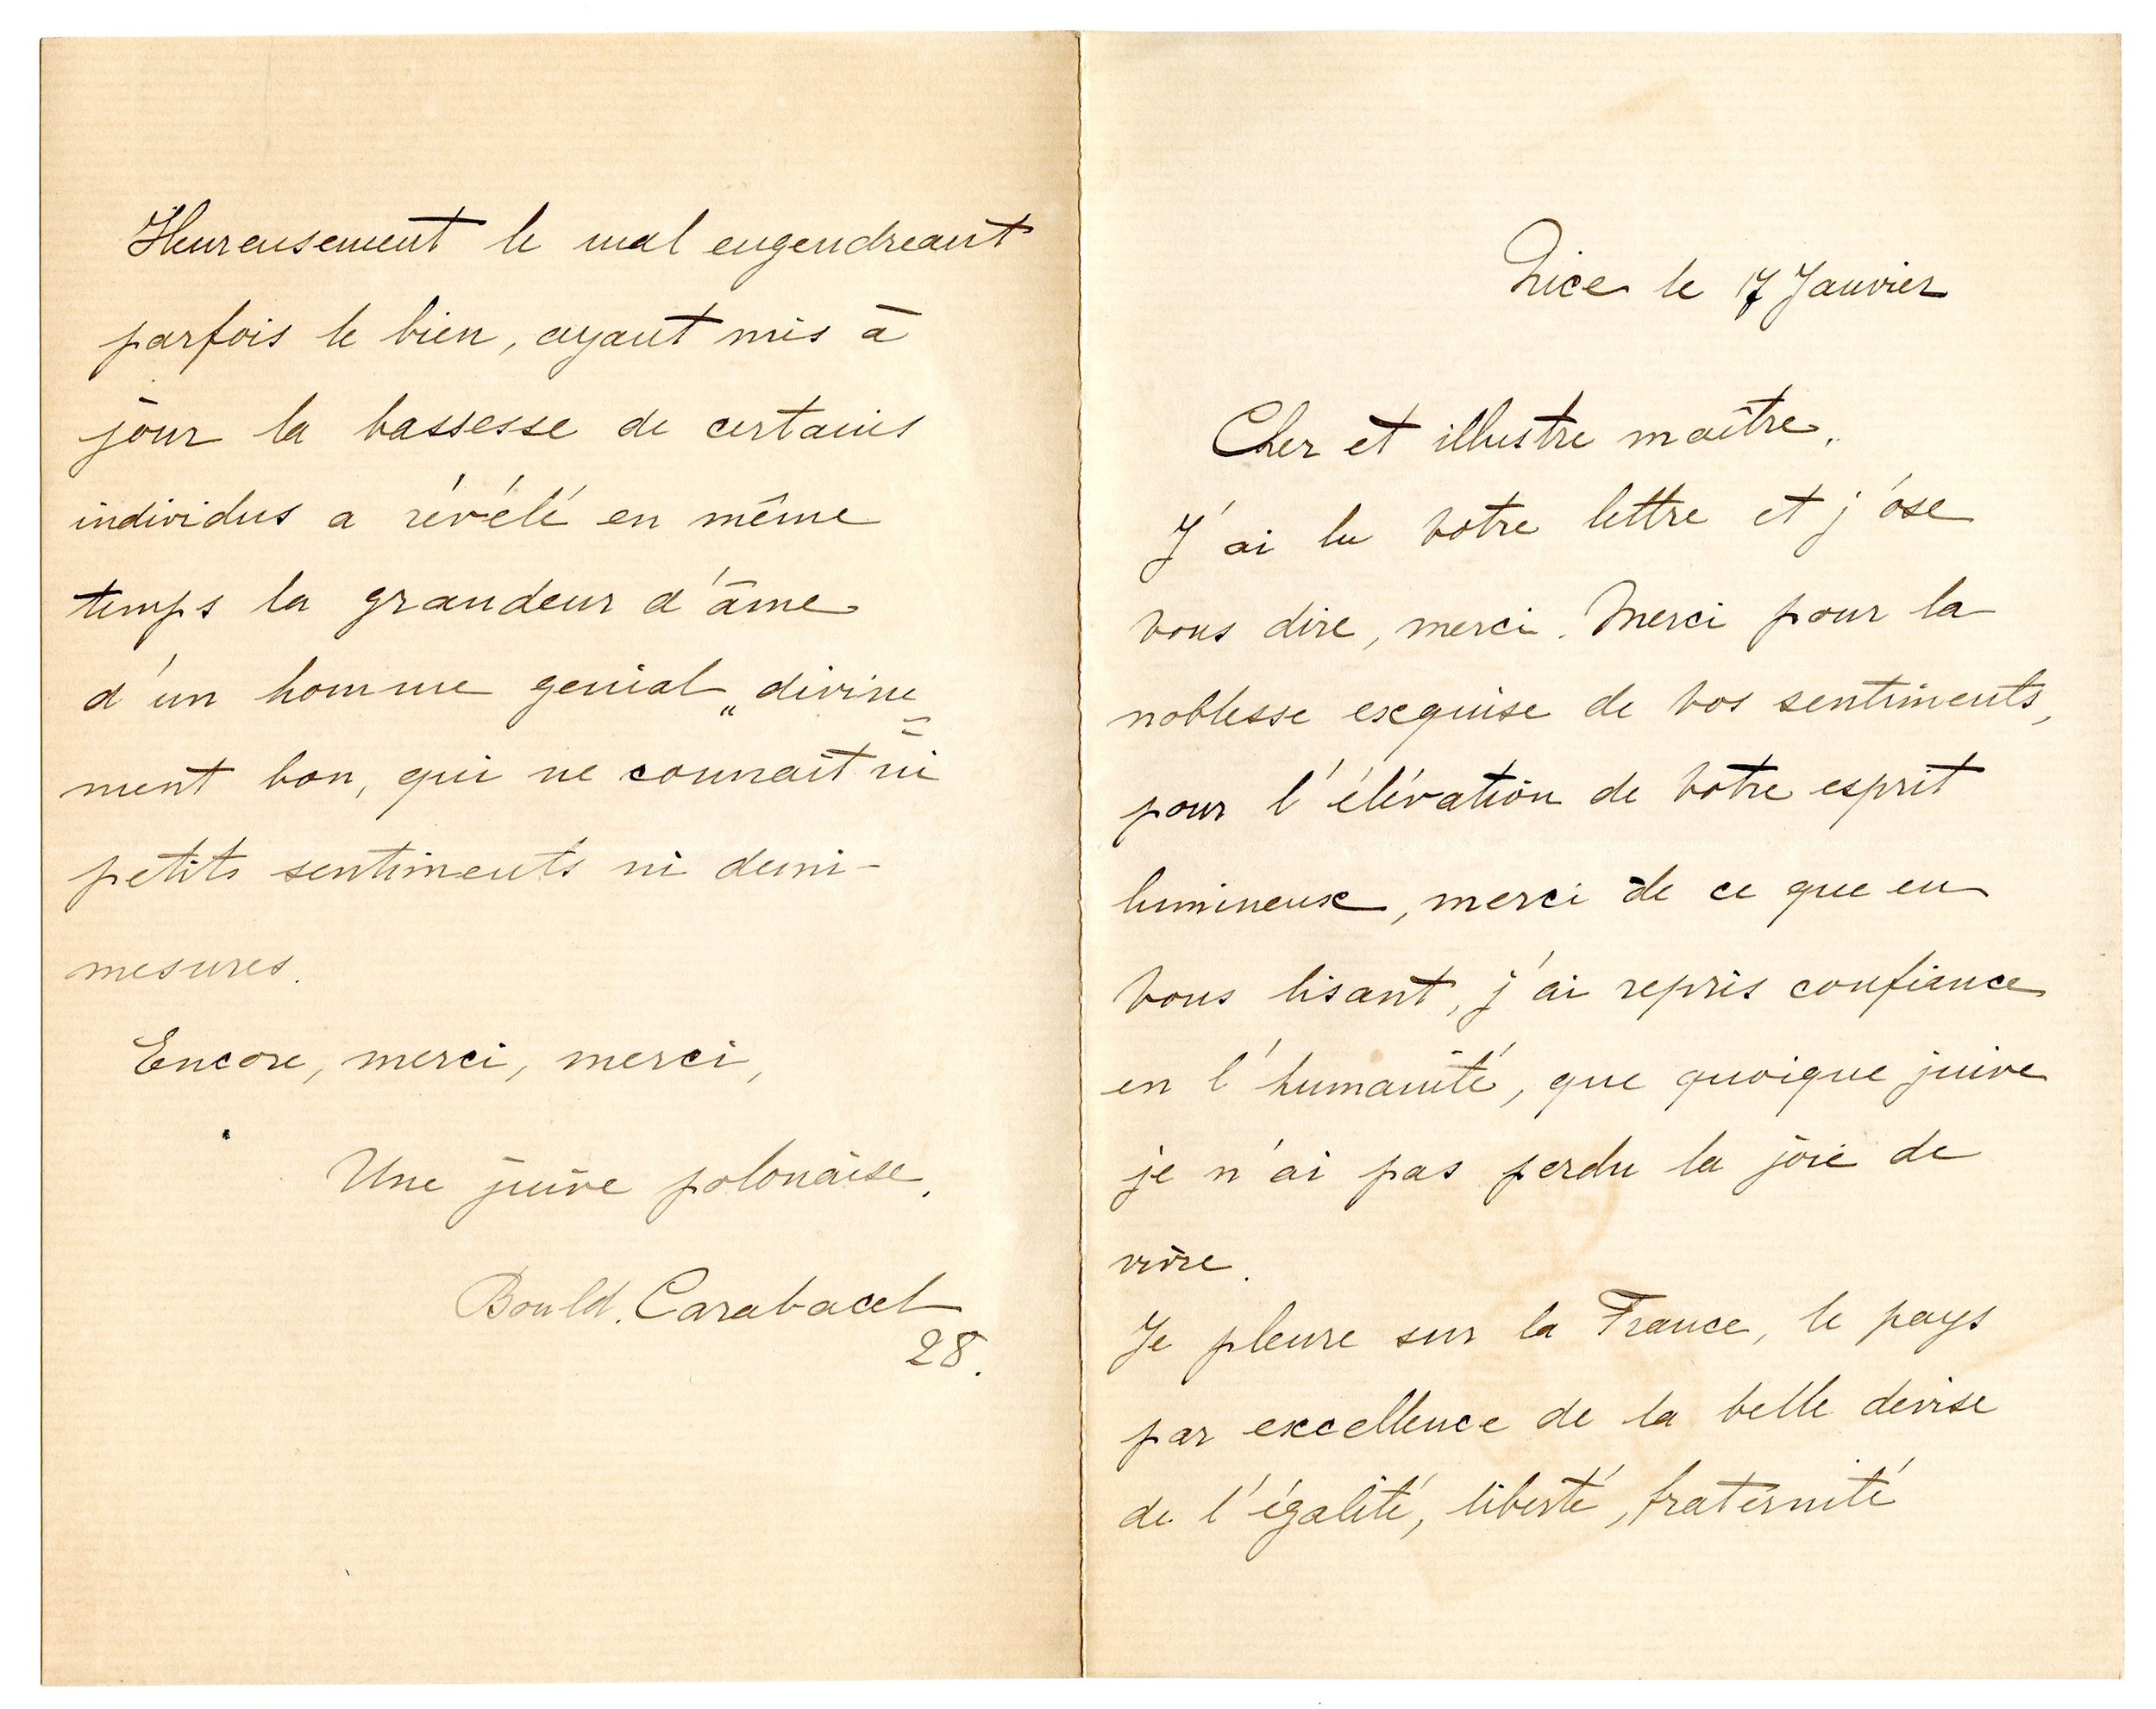 Nice le 17 Janvier
Cher et illustre maître.
J'ai lu votre lettre et j'ose
vous dire, merci. Merci pour la
noblesse exquise de vos sentiments,
pour l'élévation de votre esprit
lumineux, merci de ce que en
vous lisant, j'ai repris confiance
en l'humanité, que quoique juive
je n'ai pas perdu la joie de
vivre.
Je pleure sur la France, le pays
par excellence de la belle devise
de l'égalité, liberté, fraternité
Heureusement le mal engendreant
parfois le bien, ayant mis à
jour la bassesse de certains
individus a révélé en même
temps la grandeur d'âme
d'un homme genial „divine=
ment bon, qui ne connait ni
petits sentiments ni demi-
mesures.
Encore, merci, merci,
Une juive polonaise.
Bould. Carabacel
28.